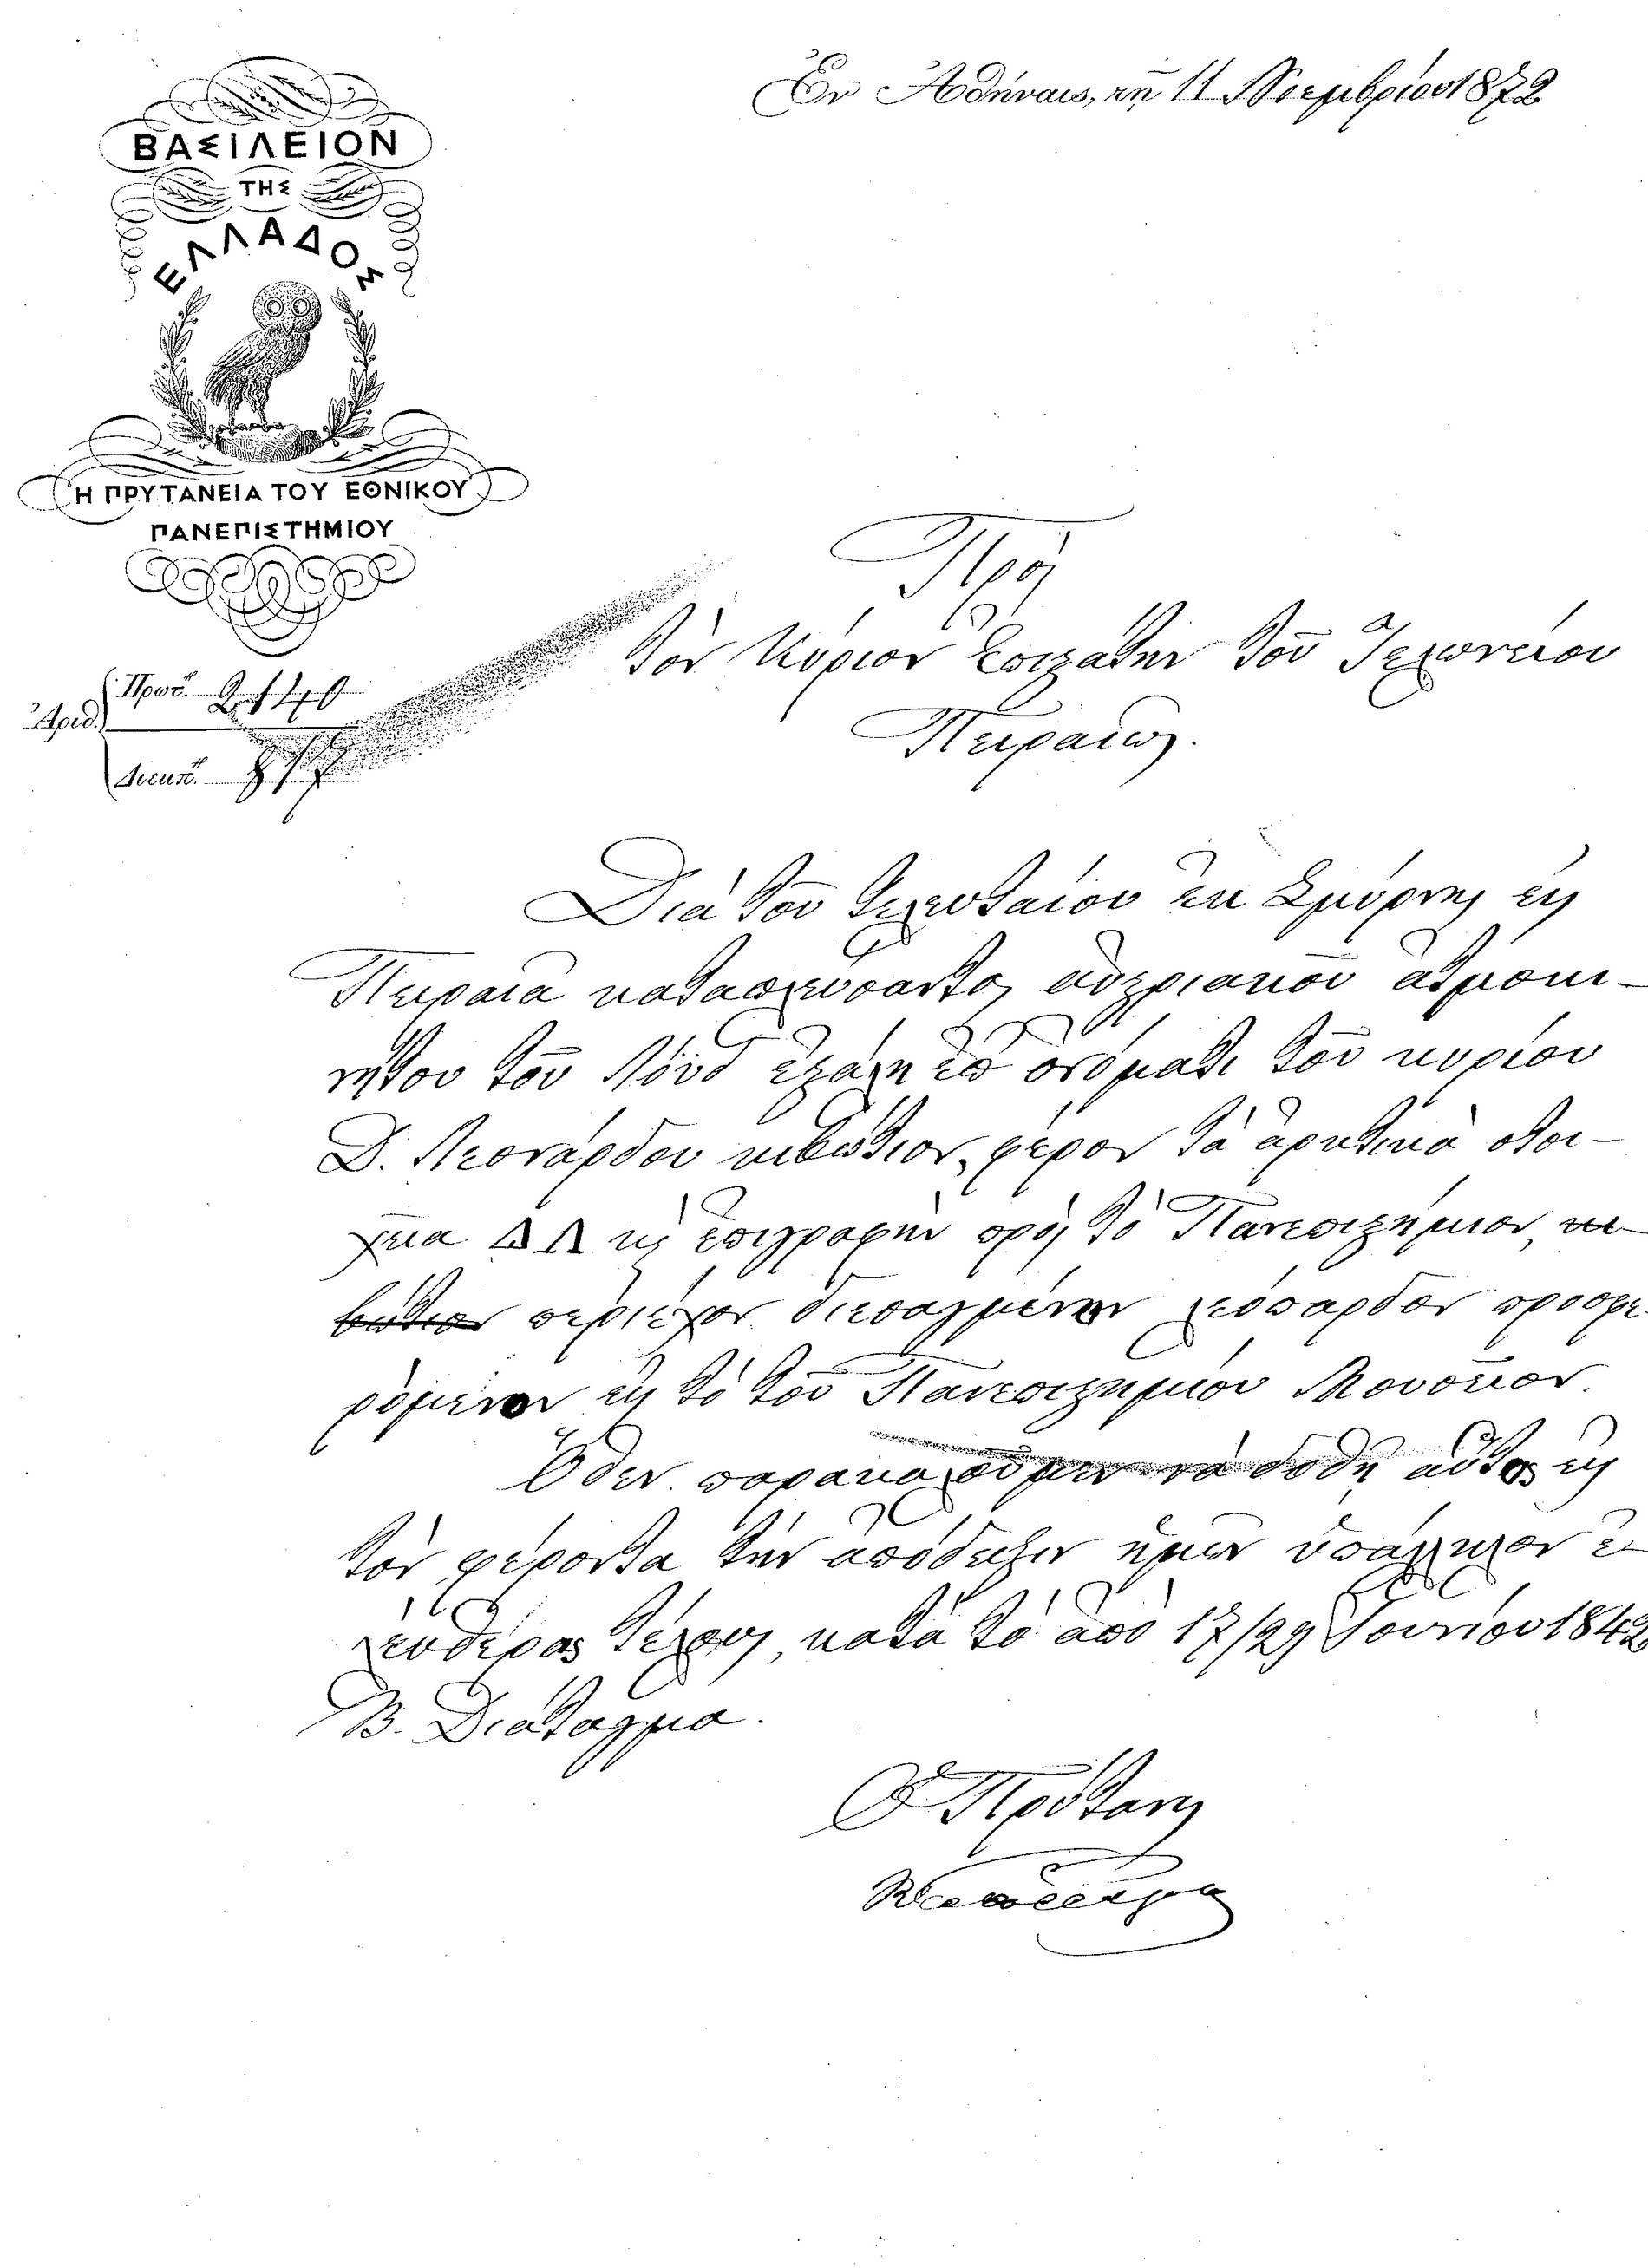 Ἐν Ἀθήναις, τῇ 11 Νοεμβρίου 1872
ΒΑΣΙΛΕΙΟΝ
ΤΗΣ
ΕΛΛΑΔΟΣ
Η ΠΡΥΤΑΝΕΙΑ ΤΟΥ ΕΘΝΙΚΟΥ
ΠΑΝΕΠΙΣΤΗΜΙΟΥ
Πρὸς
τὸν Κύριον Ἐπιστάτην τοῦ Τελωνείου
Ἀριθ. Πρωτ. 2140
Πειραιῶς.
Διεκπ.
Διὰ τοῦ τελευταίου ἐκ Σμύρνης εἰς
Πειραιᾶ καταπλεύσαντος αὐστριακοῦ ἀτμοκι-
νήτου τοῦ Λόϋδ ἐστάλη ἐπ' ὀνόματι τοῦ κυρίου
Δ. Λεονάρδου κιβώτιον, φέρον τὰ ἀρκτικὰ στοι-
χεῖα Δ Λ κ' ἐπιγραφὴν πρὸς τὸ Πανεπιστήμιον, κι-
βώτιον περιέχον διεσαγμένον λεόπαρδον προσφε-
ρόμενον εἰς τὸ τοῦ Πανεπιστημίου Μουσεῖον.
Ὅθεν παρακαλοῦμεν νὰ δοθῇ αὐτὸ εἰς
τὸν φέροντα τὴν ἀπόδειξιν ἡμῶν ὑπάλληλον ἐ-
λεύθερον τέλους, κατὰ τὸ ἀπὸ 17/29 Ἰουνίου 1842
Β. Διάταγμα.
Ὁ Πρύτανις